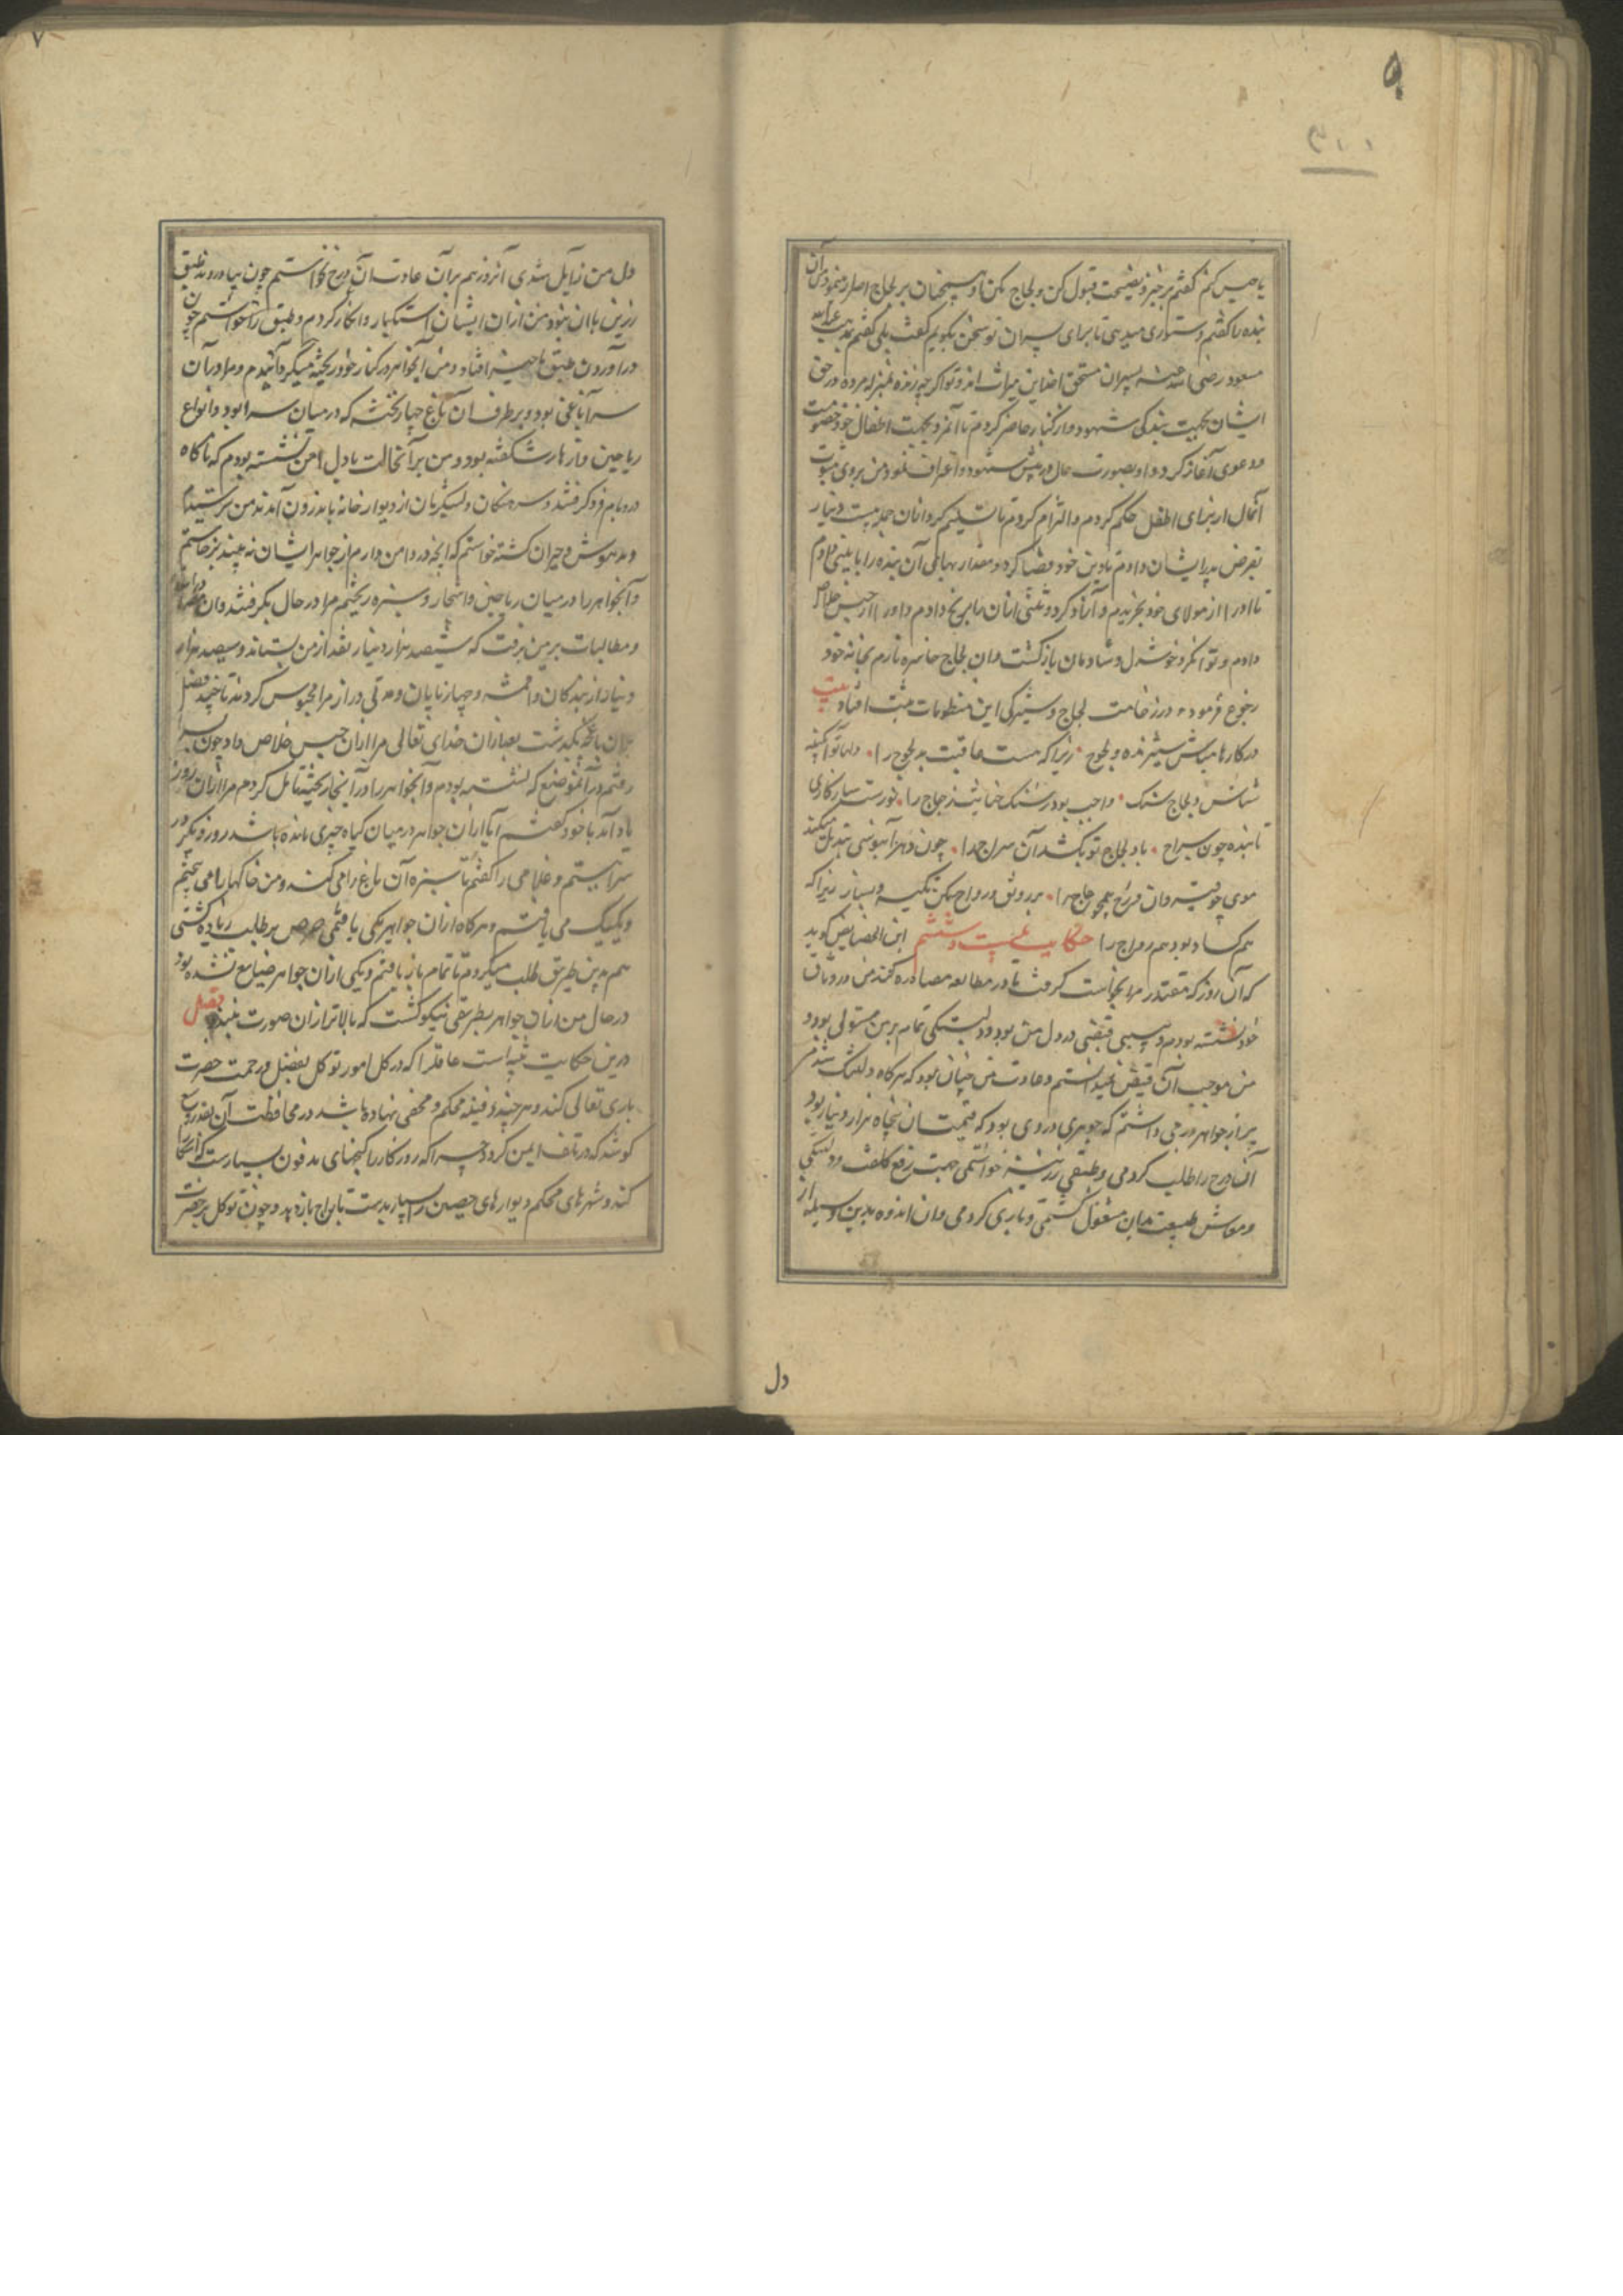 یا حبس کنم گفتم برخیز و نصیحت قبول کن و لجاج مکن او همچنان بر لجاج اصرار مینمود پس آن
بنده را گفتم دستوری میدهی تا برای پسران تو سخن بگویم گفت بلی گفتم بمذهب عبدالله
مسعود رضی الله عنه پسران مستحق اخذ این میراث اند و تو اگر چه زنده بمنزله مرده در حق
ایشان بجهت بندگی شهود و از کبار حاضر کردم تا آنمرد بجهت اطفال خود خصومت
و دعوی آغاز کرد و او بصورت حال در پیش شهود اعتراف نمود من بروی ثبوت
آنمال از برای اطفال حکم کردم و الزام کردم تا تسلیم کرد از آن جمله بیست دینار
بقرض بپدر ایشان دادم تا دین خود قضا کرد و مقدار بهای آن بنده را با بینی دادم
تا او را از مولای خود بخریدم و آزاد کرد و ثمنی از آن ما بریح دادم و او را از حبس خلاص
دادم و توانگر و خوشدل و شادمان بازگشت و آن لجاج
رجوع فرمود و در وخامت لجاج و ستیزگی این منظومات مثبت افتاد بیت
در کارها مباش ستیزنده و لجوج • زیرا که نیست عاقبت بد لجوج را • دلها تو آبگینه
شناس و لجاج سنگ • واجب بود ز سنگ خیانت زجاج را • نورست سازگاری
تابنده چون سراج • باد لجاج تو بکشد آن سراج را • چون دهر آبنوسی تبدیل میکند
موی چو قیر و آن فرق همچو عاج را • بر رونق و رواج مکن تکیه و بساز زیرا که
هم کساد بود هم رواج را حکایت بیست و ششم ابن الجصاص گوید
که آن روز که مقتدر مرا بخواست گرفت تا در مطالعه مصادره کند من در وثاق
خود نشسته بودم و بی سببی قبضی در دل من بود و دلتنگی تمام بر من مستولی بود و
من موجب آن قبض نمیدانستم و عادت من چنان بود که هرگاه دلتنگ شدم
پر از جواهر درجی داشتم که جوهری در وی بود که قیمت آن پنجاه هزار دینار بود
آن درج را طلب کردمی و طبقی زرین خواستمی جهت رفع کلفت و دلتنگی
و معاش طبیعت بدان مشغول گشتمی و بازی کردمی و آن اندوه بدین وسیله از
دل
دل من زایل شدی آنروز هم بر آن عادت آن درج خواستم چون بیاوردند طبق
زرین با آن نبود من از آن ایشان استکبار و انکار کردم و طبق را خواستم چون
در آوردن طبق تاخیر افتاد و من آنجواهر در کنار خود ریخته میگردانیدم و مرا در آن
سرا باغی بود و بر طرف آن باغ چهار تخته که در میان سرا بود و انواع
ریاحین و ازهار شگفته بود و من بر آنحالت با دل امن نشسته بودم که ناگاه
در و بام فرو گرفتند و سرهنگان و لشگریان از دیوار خانه باندرون آمدند من ترسیدم
و مدهوش و حیران گشته خواستم که آنچه در دامن دارم از جواهر ایشان نه بینند برخاستم
و آنجواهر را در میان ریاحین و اشجار و سبزه ریختم مرا در حال بگرفتند و آن مصادرات
و مطالبات بر من برفت که ششصد هزار دینار نقد از من بستاند و سیصد هزار
دینار از بندگان و اقمشه و چهارپایان و مدتی دراز مرا محبوس کردند تا چند فصل
بر آن باغچه بگذشت بعد از آن خدای تعالی مرا از آن حبس خلاص داد چون بسرا
رفتم در آنموضع که نشسته بودم و آنجواهر را در آنجا ریخته تامل کردم مرا از آن روز
یاد آمد با خود گفتم آیا از آن جواهر در میان گیاه چیزی مانده باشد روز دیگر در
سرا بستم و غلامی را گفتم تا سبزه آن باغ را می کند و من خاکها را می پیختم
و یکیک می یافتم و هرگاه از آن جواهر یکی یافتمی حرص بر طلب زیاده گشتی
هم بدین طریق طلب میکردم تا تمام باز یافتم و یکی از آن جواهر ضایع نشده بود
در حال من از آن جواهر بطریقی نیکو گشت که بالاتر از آن صورت نبندد فصل
درین حکایت تنبیه است عاقلرا که در کل امور توکل بفضل و رحمت حضرت
باری تعالی کند و هر چند دفینه محکم و مخفی نهاده باشد در محافظت آن بقدر وسع
کوشد که در تلف ایمن گردد چرا که روزگار را گنجهای مدفون بسیارست که آشکارا
کند و شهرهای محکم و دیوارهای حصین را بسیار بدست تاراج باز دید و چون توکل بر حضرت